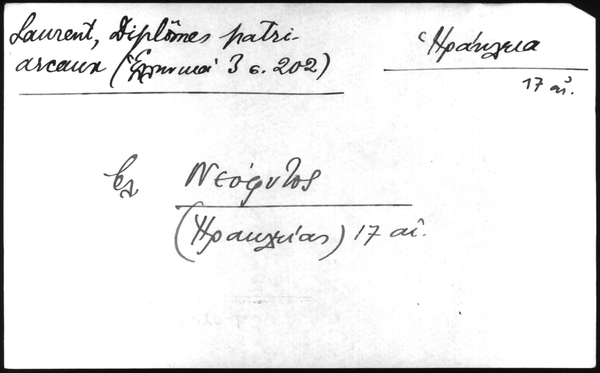 Laurent, Diplômes patri-
arcaux (Ἑλληνικά 3 σ. 202)
Ἡράκλεια
17 αἰ.
βλ Νεόφυτος
(Ἡρακλείας) 17 αἰ.